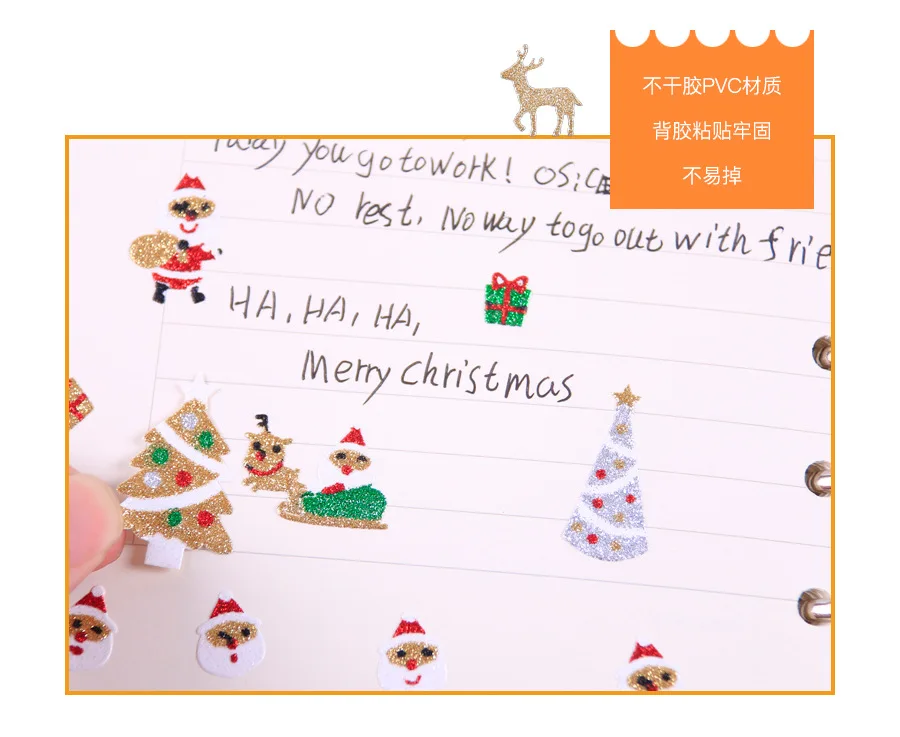 不干胶PVC材质
背胶粘贴牢固
不易掉
you go to work!
No rest, No way to go out with frie
HA, HA, HA,
Merry Christmas